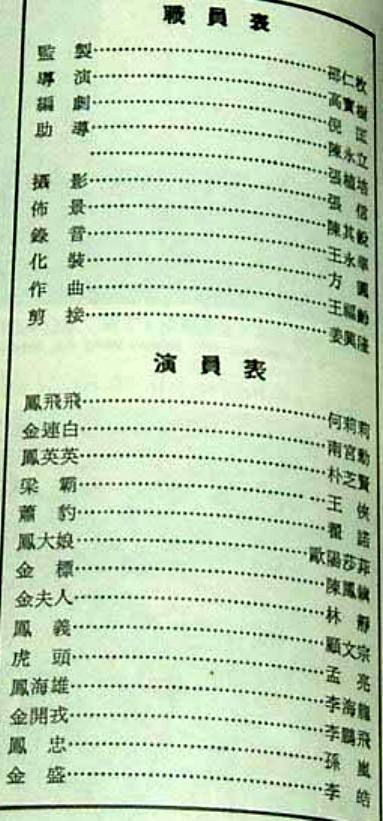 職員表
監製……邵仁枚
導演……高寶樹
編劇……倪匡
助導……陳永立
……張植培
攝影……張信
佈景……陳其銳
錄音……王永華
化裝……方圓
作曲……王福齡
剪接……姜興隆
演員表
鳳飛飛……何莉莉
金連白……南宮勳
鳳英英……朴芝賢
梁霸……王俠
蕭豹……瞿諾
鳳大娘……歐陽莎菲
金標……陳鳳鎮
金夫人……林靜
鳳義……顧文宗
虎頭……孟亮
鳳海雄……李海龍
金開戎……李鵬飛
鳳忠……孫嵐
金盛……李皓